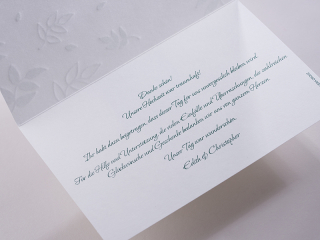 Danke schön!
Unsere Hochzeit war traumhaft!
Ihr habt dazu beigetragen, dass dieser Tag für uns unvergesslich bleiben wird.
Für die Hilfe und Unterstützung, die tollen Einfälle und Überraschungen, die zahlreichen
Glückwünsche und Geschenke bedanken wir uns von ganzem Herzen.
Unser Tag war wunderschön.
Edith & Christopher